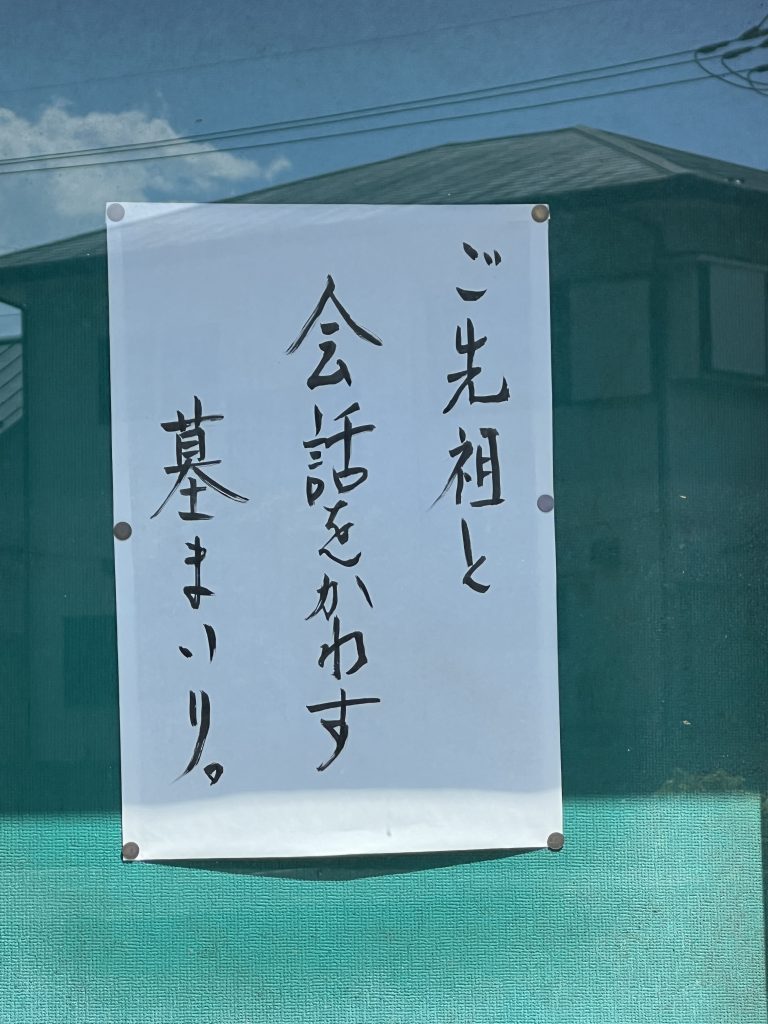 ご先祖と
会話をかわす
墓まいり。